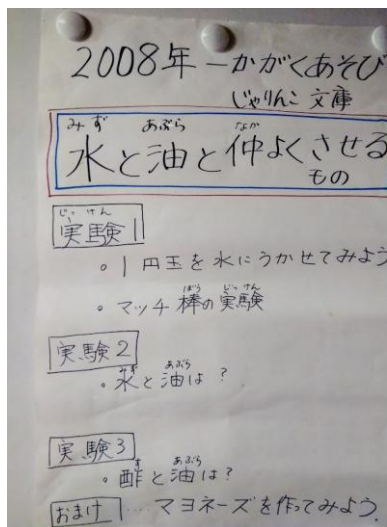 2008年－かがくあそび
じゃりんこ文庫
みず あぶら なか
水と油と仲よくさせる
もの
じっけん
実験1
。1円玉を水にうかせてみよう
ぼう じっけん
・マッチ棒の実験
実験2
みず あぶら
・水と油は?
実験3
す あぶら
・酢と油は?
おまけ … マヨネーズを作ってみよう